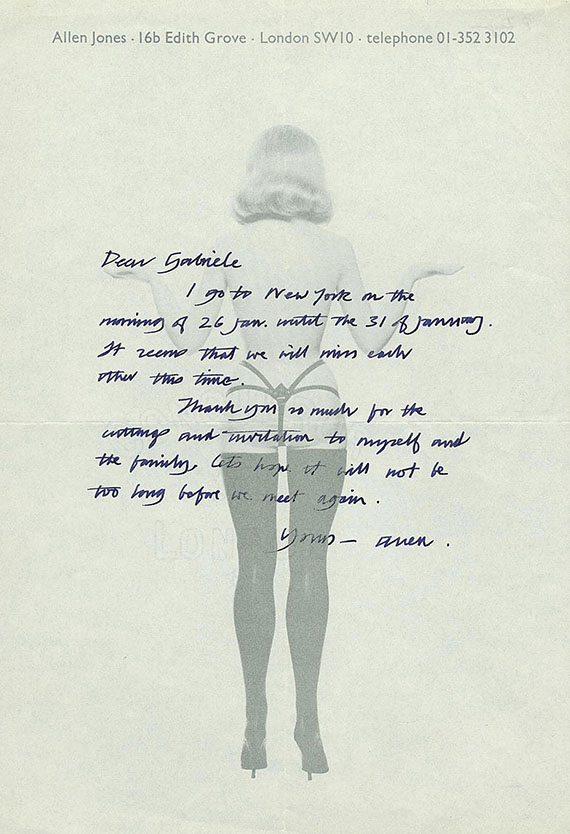 Allen Jones · 16b Edith Grove · London SW10 · telephone 01-352 3102
Dear Gabriele
I go to New York on the
morning of 26 Jan. until the 31 of January.
It seems that we will miss each
other this time.
Thank you so much for the
cuttings and invitation to myself and
the family, lets hope it will not be
too long before we meet again.
Yours — Allen.